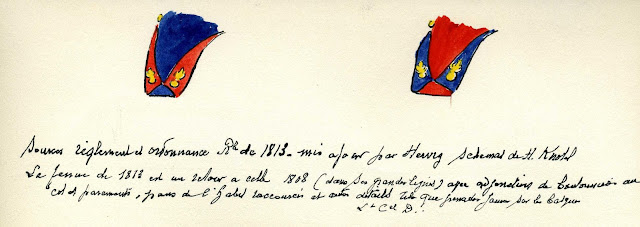 Sources règlement et ordonnance Rle de 1813 - mis à jour par Hervig schémas de H. Knötel
La tenue de 1813 est un retour à celle 1808 (dans ses grandes lignes) avec adjonctions de boutonnières au
col et parements, pans de l'habit raccourcis et autres détails tels que panache jaune sur le casque
Lt Cel D.